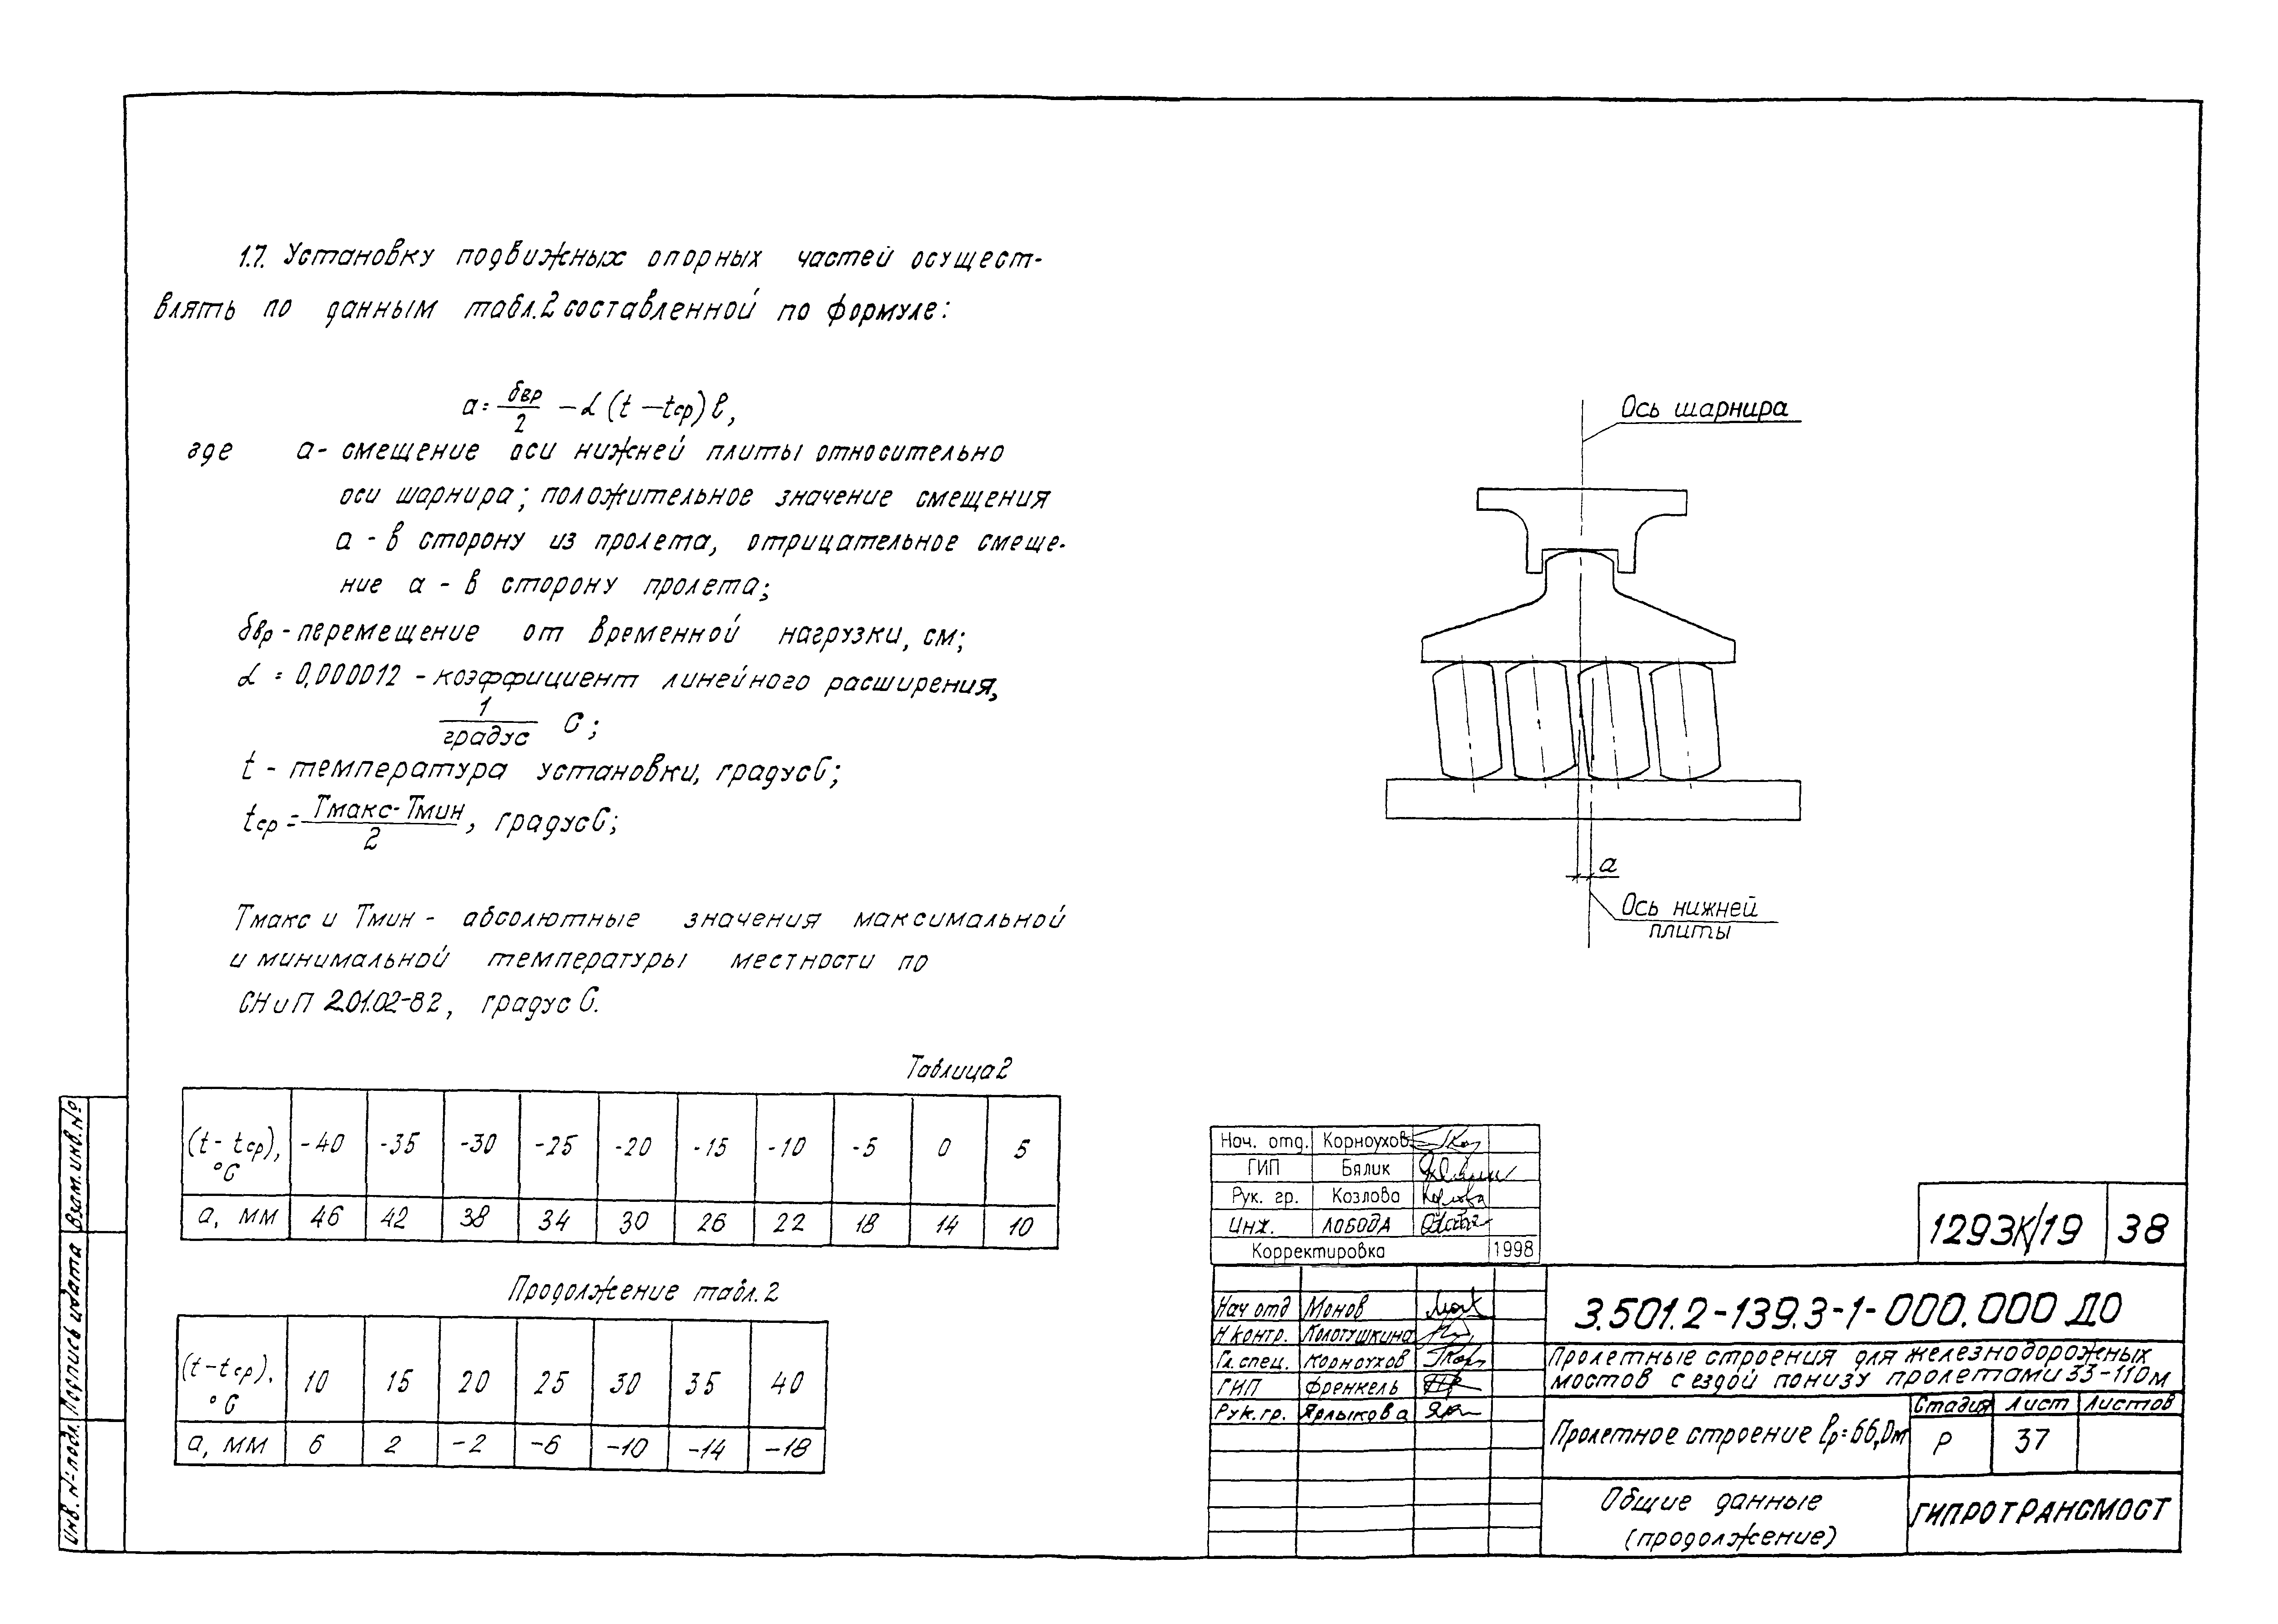 1.7. Установку подвижных опорных частей осущест-
влять по данным табл.2 составленной по формуле:
a = δвр/2 – α (t – tср) ℓ,
где a - смещение оси нижней плиты относительно
оси шарнира; положительное значение смещения
a - в сторону из пролета, отрицательное смеще-
ние a - в сторону пролета;
δвр - перемещение от временной нагрузки, см;
α = 0,000012 - коэффициент линейного расширения,
1/градус С;
t - температура установки, градус С;
tср = Тмакс-Тмин/2, градус С;
Тмакс и Тмин - абсолютные значения максимальной
и минимальной температуры местности по
СНиП 2.01.02-82, градус С.
Таблица 2
(t - tср), °С -40 -35 -30 -25 -20 -15 -10 -5 0 5
a, мм 46 42 38 34 30 26 22 18 14 10
Продолжение табл. 2
(t - tср), °С 10 15 20 25 30 35 40
a, мм 6 2 -2 -6 -10 -14 -18
Ось шарнира
a
Ось нижней
плиты
Нач. отд. Корноухов
ГИП Бялик
Рук. гр. Козлова
Инж. ЛОБОДА
Корректировка 1998
1293К/19 38
Нач отд Монов
Н контр. Колотушкина
Гл. спец. Корноухов
ГИП Френкель
Рук. гр. Ярлыкова
3.501.2-139.3-1-000.000 ДО
Пролетные строения для железнодорожных
мостов с ездой понизу пролетами 33-110 м
Пролетное строение ℓр=66,0м
Стадия Лист Листов
Р 37
Общие данные
(продолжение)
ГИПРОТРАНСМОСТ
Взам. инв. №
Подпись и дата
Инв. № подл.